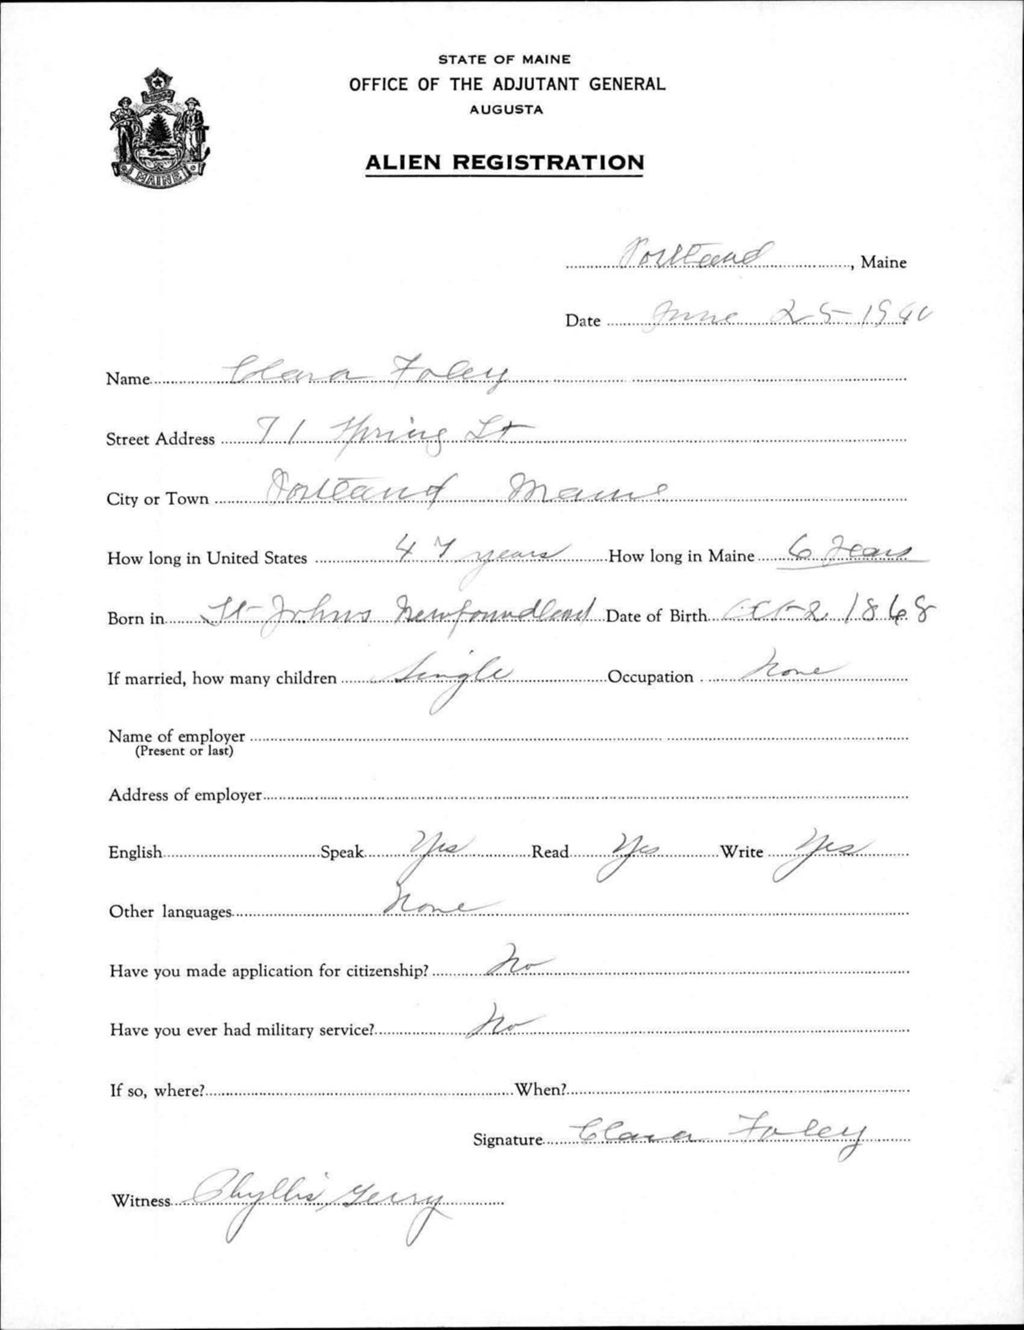 STATE OF MAINE
OFFICE OF THE ADJUTANT GENERAL
AUGUSTA
ALIEN REGISTRATION
MAINE
Portland, Maine
Date June 25-1940
Name Clara Foley
Street Address 71 Spring St
City or Town Portland Maine
How long in United States 47 years How long in Maine 6 Years
Born in St-Johns Newfoundland Date of Birth Oct-2. 1868
If married, how many children Single Occupation None
Name of employer
(Present or last)
Address of employer
English Speak Yes Read Yes Write Yes
Other languages None
Have you made application for citizenship? No
Have you ever had military service? No
If so, where? When?
Signature Clara Foley
Witness Phyllis Gerry